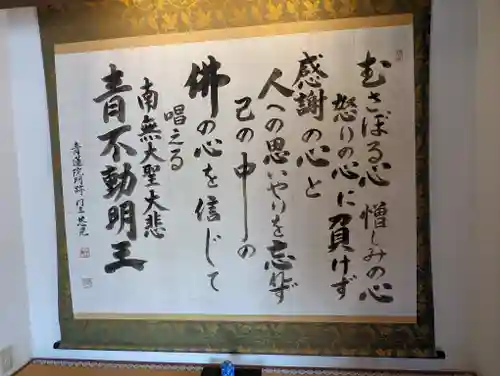 むさぼる心 憎しみの心
怒りの心に負けず
感謝の心と
人への思いやりを忘れず
己の中の
佛の心を信じて
唱える
南無大聖大悲
青不動明王
青蓮院門跡